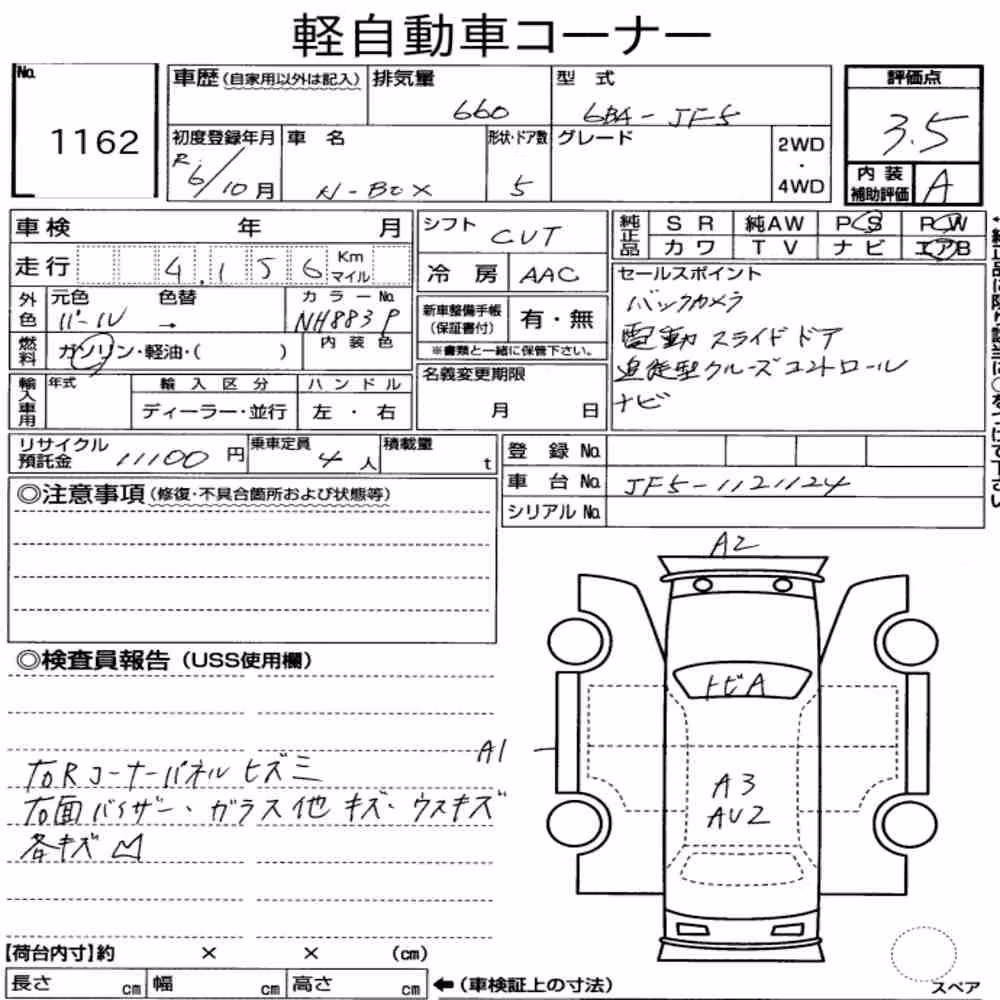 軽自動車コーナー
No. 1162
車歴 (自家用以外は記入)
排気量 660
型式 6BA-JF5
評価点 3.5
初度登録年月 R.6/10月
車名 N-BOX
形状・ドア数 5
グレード
2WD・4WD
内装補助評価 A
車検 年 月
シフト CVT
純正品 SR 純AW PS PW
カワ TV ナビ エアB
走行 4,156 Km マイル
冷房 AAC
セールスポイント
バックカメラ
電動スライドドア
追従型クルーズコントロール
ナビ
外色 元色 パール 色替 →
カラーNo. NH883P
新車整備手帳(保証書付) 有・無
※書類と一緒に保管下さい。
燃料 ガソリン・軽油・( )
内装色
名義変更期限 月 日
輸入車用 年式
輸入区分 ディーラー・並行
ハンドル 左・右
リサイクル預託金 11100円
乗車定員 4人
積載量 t
登録No.
車台No. JF5-1121124
シリアルNo.
◎注意事項(修復・不具合箇所および状態等)
◎検査員報告(USS使用欄)
右Rコーナーパネルヒズミ
右面バイザー・ガラス他キズ・ウスキズ
各キズ
A2
トビA
A1
A3
AU2
【荷台内寸】約 × × (cm)
長さ cm 幅 cm 高さ cm ←(車検証上の寸法)
スペア